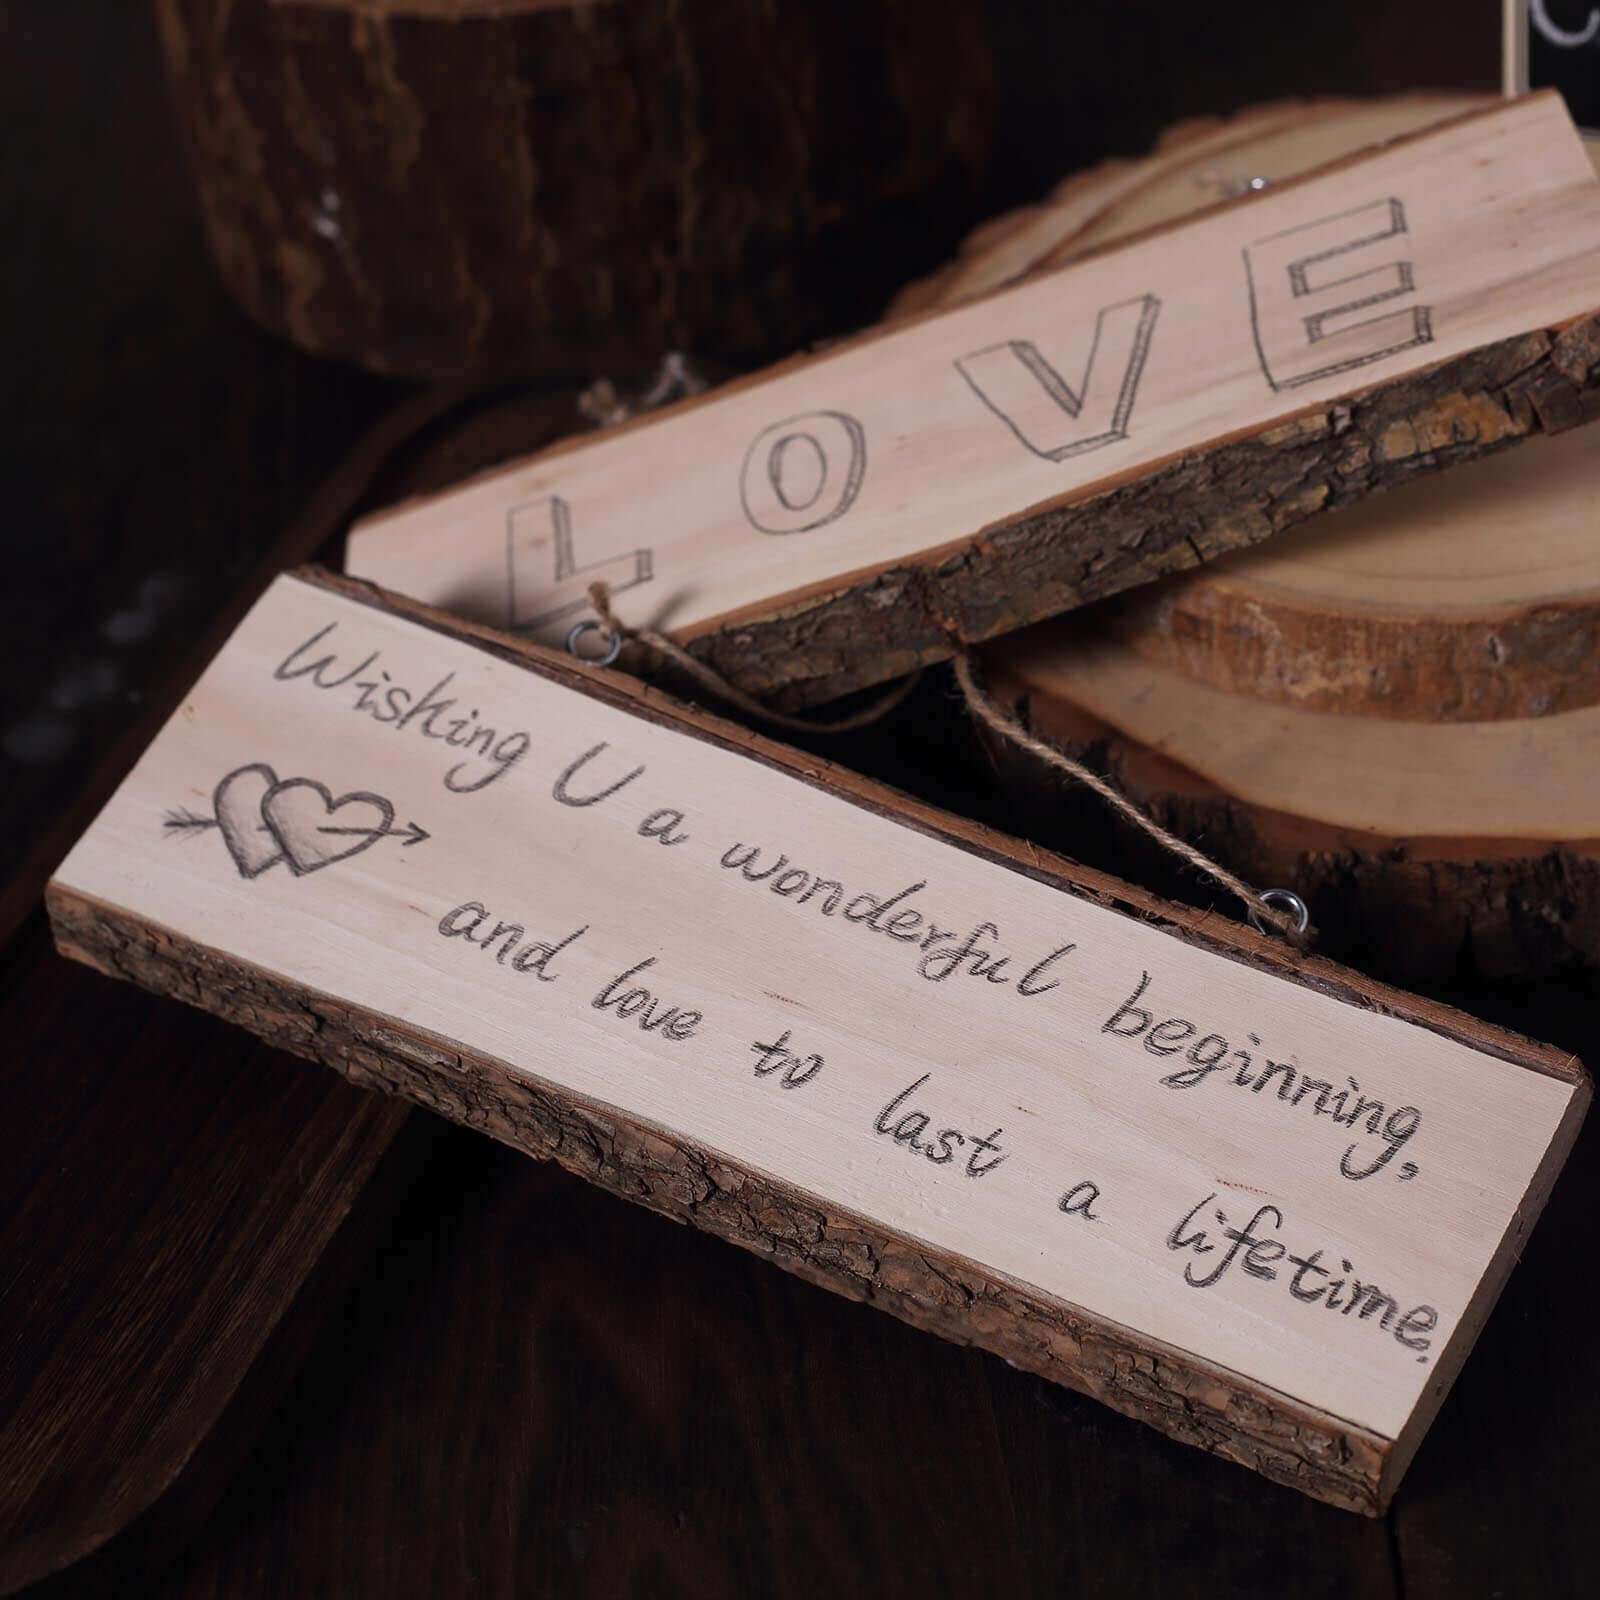 LOVE
Wishing U a wonderful beginning,
and love to last a lifetime.